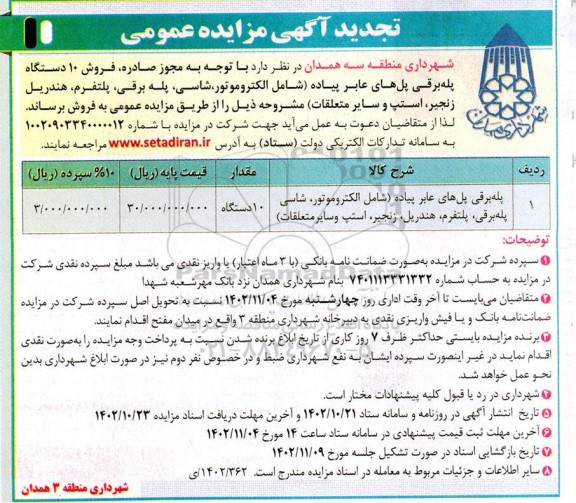 تجدید آگهی مزایده عمومی
شهرداری همدان
شهرداری منطقه سه همدان در نظر دارد با توجه به مجوز صادره، فروش ۱۰ دستگاه
پله‌برقی پل‌های عابر پیاده (شامل الکتروموتور،شاسی، پله برقی، پلتفرم، هندریل،
زنجیر، استپ و سایر متعلقات) مشروحه ذیل را از طریق مزایده عمومی به فروش برساند.
لذا از متقاضیان دعوت به عمل می‌آید جهت شرکت در مزایده با شماره ۱۰۰۲۰۹۰۳۳۴۰۰۰۰۱۲
به سامانه تدارکات الکتریکی دولت (ستاد) به آدرس www.setadiran.ir مراجعه نمایند.
ردیف شرح کالا مقدار قیمت پایه(ریال) ۱۰% سپرده (ریال)
۱ پله‌برقی پل‌های عابر پیاده (شامل الکتروموتور، شاسی پله‌برقی، پلتفرم، هندریل، زنجیر، استپ وسایرمتعلقات) ۱۰دستگاه ۳۰/۰۰۰/۰۰۰/۰۰۰ ۳/۰۰۰/۰۰۰/۰۰۰
توضیحات:
۱ سپرده شرکت در مزایده به‌صورت ضمانت نامه بانکی (با ۳ ماه اعتبار) یا واریز نقدی می باشد مبلغ سپرده نقدی شرکت
در مزایده به حساب شماره ۷۴۰۱۱۱۳۳۳۱۳۳۲ بنام شهرداری همدان نزد بانک مهرشعبه شهدا
۲ متقاضیان می‌بایست تا آخر وقت اداری روز چهارشنبه مورخ ۱۴۰۲/۱۱/۰۴ نسبت به تحویل اصل سپرده شرکت در مزایده
ضمانت‌نامه بانک و یا فیش واریزی نقدی به دبیرخانه شهرداری منطقه ۳ واقع در میدان مفتح اقدام نمایند.
۳ برنده مزایده بایستی حداکثر ظرف ۷ روز کاری از تاریخ ابلاغ برنده شدن نسبت به پرداخت وجه مزایده را به‌صورت نقدی
اقدام نماید در غیر اینصورت سپرده ایشان به نفع شهرداری ضبط و در خصوص نفر دوم نیز در صورت ابلاغ شهرداری بدین
نحو عمل خواهد شد.
۴ شهرداری در رد یا قبول کلیه پیشنهادات مختار است.
۵ تاریخ انتشار آگهی در روزنامه و سامانه ستاد ۱۴۰۲/۱۰/۲۱ و آخرین مهلت دریافت اسناد مزایده ۱۴۰۲/۱۰/۲۳
۶ آخرین مهلت ثبت قیمت پیشنهادی در سامانه ستاد ساعت ۱۴ مورخ ۱۴۰۲/۱۱/۰۴
۷ تاریخ بازگشایی اسناد در صورت تشکیل جلسه مورخ ۱۴۰۲/۱۱/۰۹
۸ سایر اطلاعات و جزئیات مربوط به معامله در اسناد مزایده مندرج است. ۱۴۰۲/۳۶۲/ی
شهرداری منطقه ۳ همدان